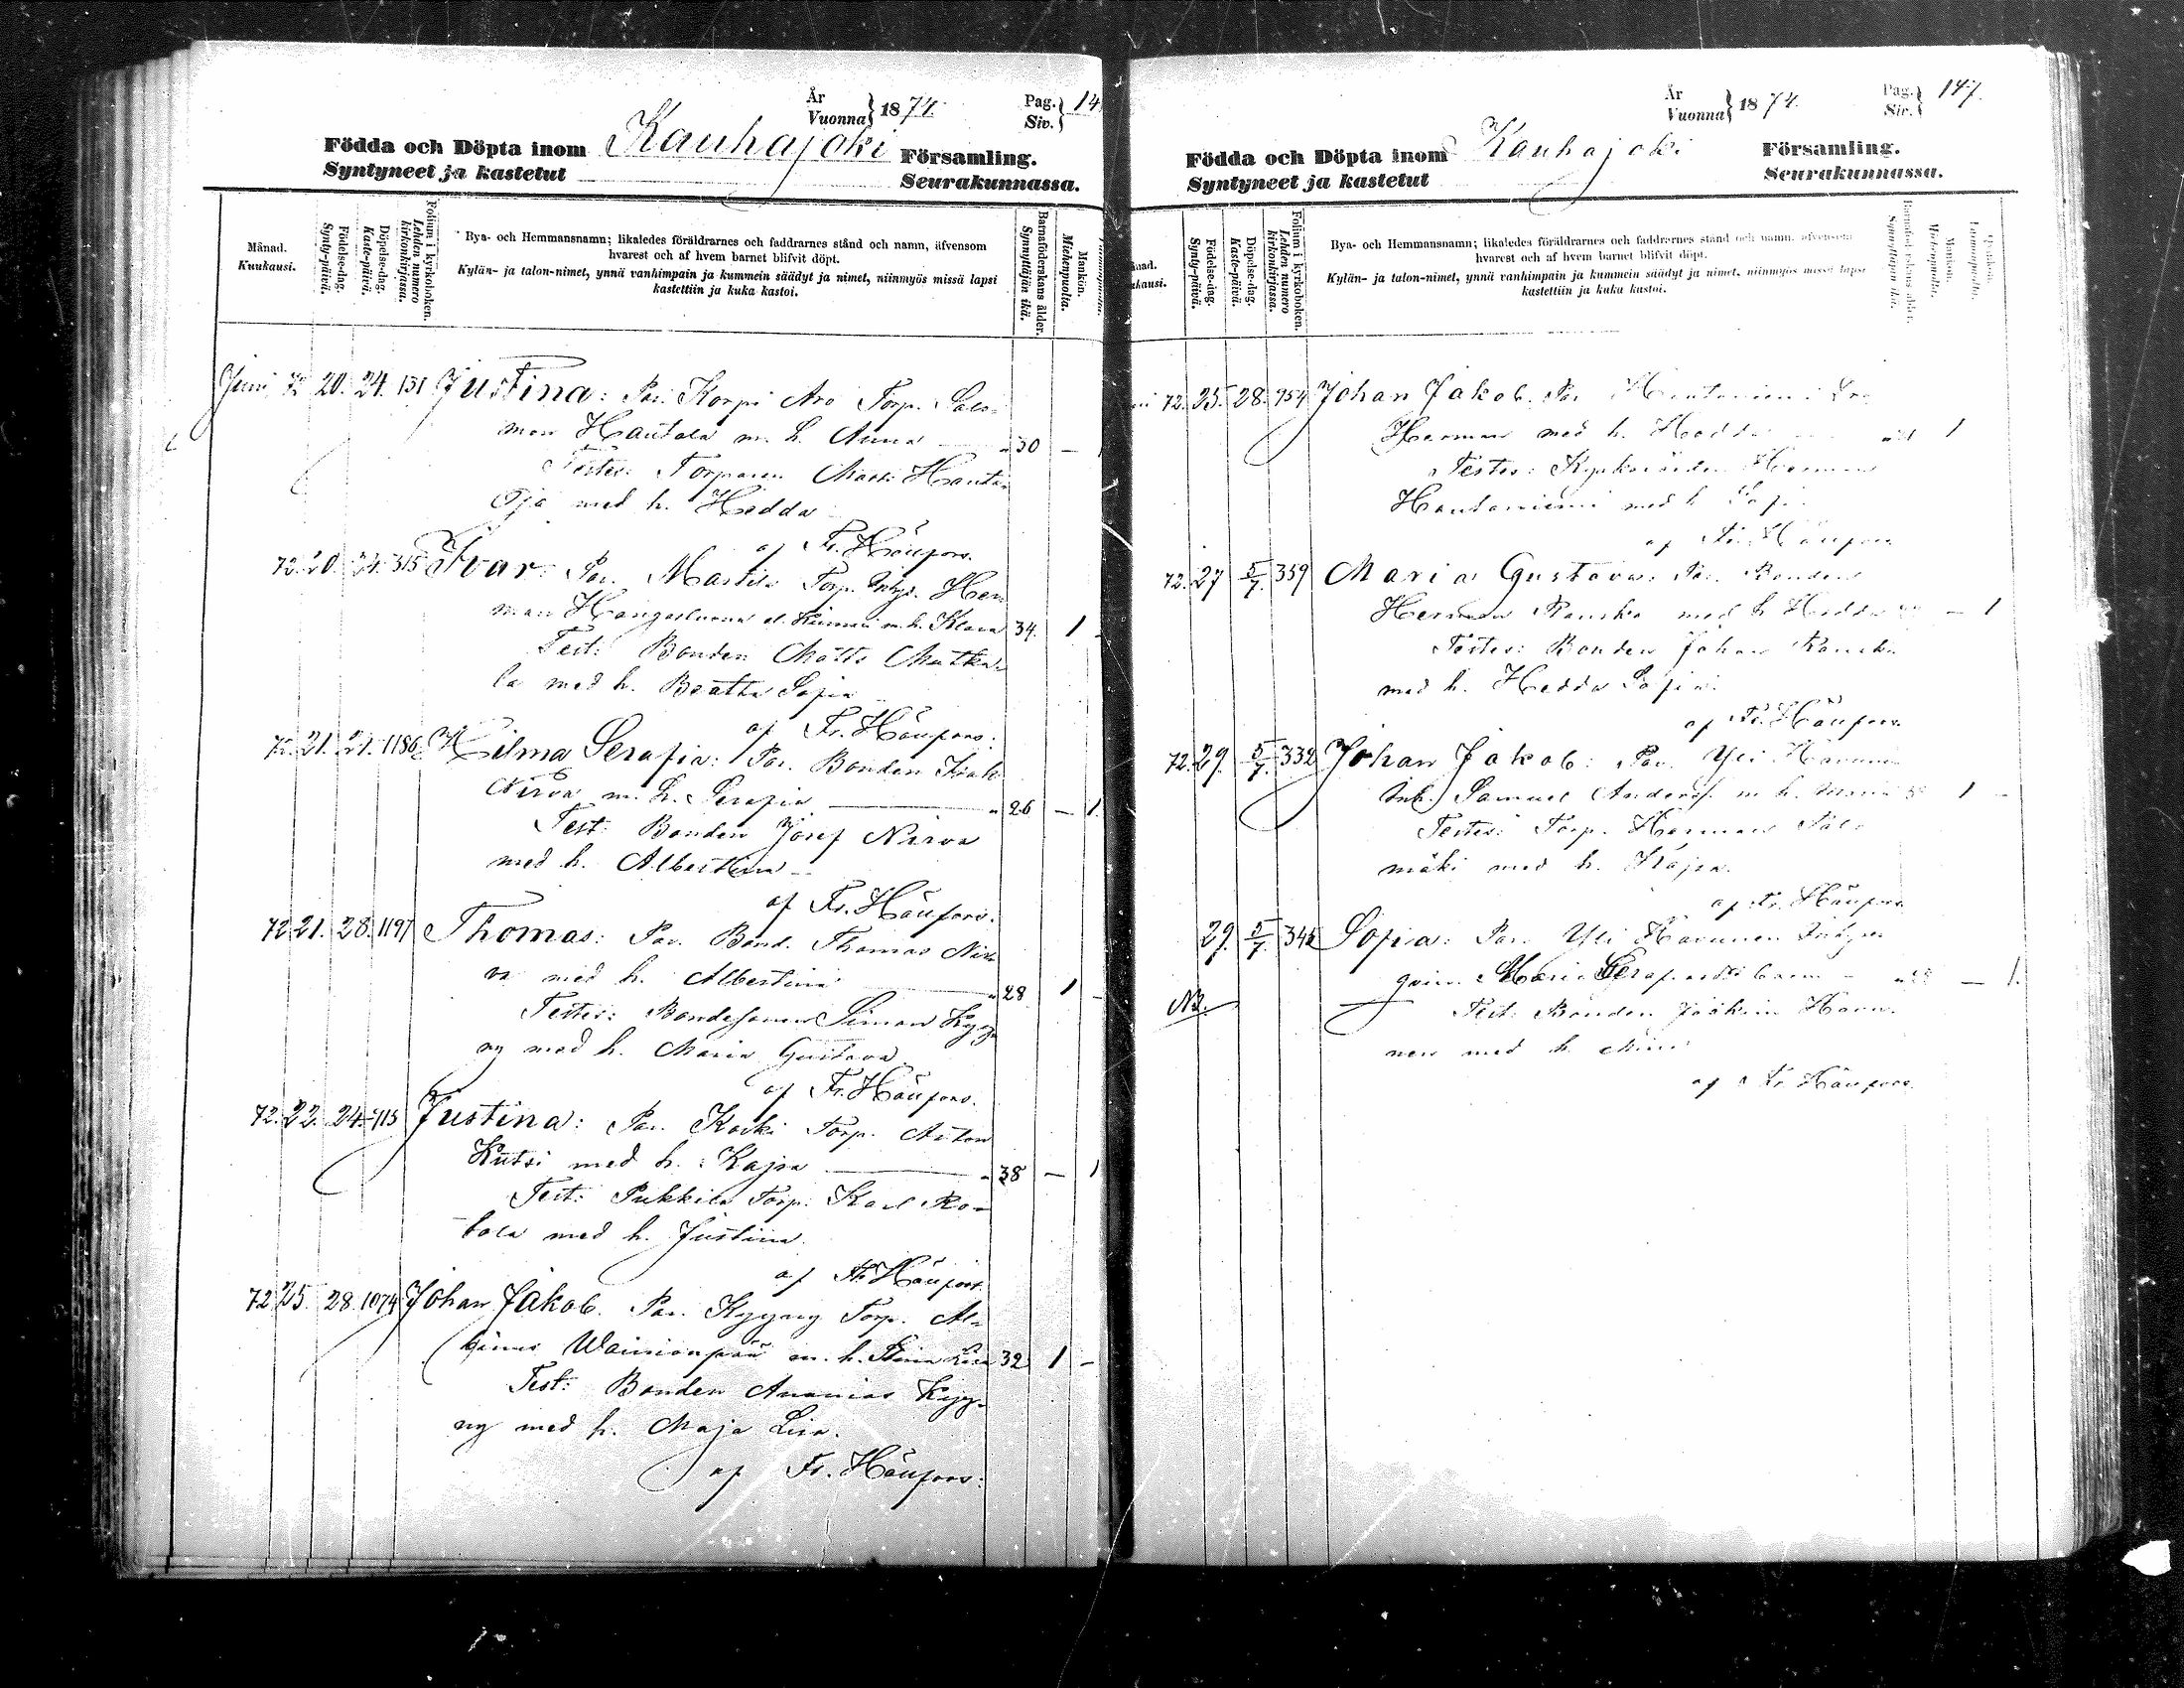 År
Vuonna } 1874.
Pag.
Siv. } 14
Födda och Döpta inom Kauhajoki Församling.
Syntyneet ja kastetut Seurakunnassa.
Månad.
Kuukausi.
Födelse-dag.
Synty-päivä.
Döpelse-dag.
Kaste-päivä.
Folium i kyrkoboken.
Lehden numero kirkonkirjassa.
Bya- och Hemmansnamn; likaledes föräldrarnes och faddrarnes stånd och namn, äfvensom
hvarest och af hvem barnet blifvit döpt.
Kylän- ja talon-nimet, ynnä vanhimpain ja kummein säädyt ja nimet, niinmyös missä lapsi
kastettiin ja kuka kastoi.
Barnaföderskans ålder.
Synnyttäjän ikä.
Mankön.
Miehenpuolia.
Juni 72 20. 24. 131 Justina: Par. Korpi Aro Torp. Salo-
mon Hautala m. h. Anna 30 —
Testes: Torparen Matts Hauta-
oja med h. Hedda
af Fr. Häufors.
72. 20. 24. 315 Ivar: Par. Mattila Torp. Inhys. Her
man m. h. Klara 34. 1
Test: Bonden Matts Mattka-
la med h. Beatta Sofia
af Fr. Häufors.
72. 21. 21. 1186 Hilma Serafia: Par. Bonden Isak
Nirva m. h. Serafia 26 — 1.
Test: Bonden Josef Nirva
med h. Albertina
af Fr. Häufors.
72 21. 28. 1197 Thomas: Par. Bond. Thomas Nir-
va med h. Albertina 28 1
Testes: Bondesonen Simon Kyy-
ny med h. Maria Gustava
af Fr. Häufors.
72. 22. 24. 115 Justina: Par. Koski Torp. Anton
Kutsi med h. Kajsa 38 — 1
Test: Pukkila Torp. Karl Ro-
bola med h. Justina.
af Fr. Häufors.
72 25. 28. 1074 Johan Jakob. Par. Kyyny Torp. Al-
binus Wainionpää m. h. Stina Lisa 32 1 —
Test: Bonden Ananias Kyy-
ny med h. Maja Lisa.
af Fr. Häufors.
År
Vuonna } 1874.
Pag.
Siv. } 147.
Födda och Döpta inom Kauhajoki Församling.
Syntyneet ja kastetut Seurakunnassa.
Födelse-dag.
Synty-päivä.
Döpelse-dag.
Kaste-päivä.
Folium i kyrkoboken.
Lehden numero kirkonkirjassa.
Bya- och Hemmansnamn; likaledes föräldrarnes och faddrarnes stånd och namn, äfvensom
hvarest och af hvem barnet blifvit döpt.
Kylän- ja talon-nimet, ynnä vanhimpain ja kummein säädyt ja nimet, niinmyös missä lapsi
kastettiin ja kuka kastoi.
72. 25. 28. 954 Johan Jakob. Par. Hautaniemi
Herman med h. Hedda 1
Testes: Herman
Hautaniemi med h. Sofia
af Fr. Häufors
72. 27 5/7. 359 Maria Gustava: Par. Bonden
Herman Ranska med h. Hedda — 1
Testes: Bonden Johan Ranska
med h. Hedda Sofia.
af Fr. Häufors
72. 29. 5/7. 332 Johan Jakob: Par. Yli Havunen
Inh. Samuel Andersf. m. h. Maria 1 —
Testes: Torp. Herman Palo-
mäki med h. Kajsa.
af Fr. Häufors
29. 5/7. 345 Sofia: Par. Yli Havunen Inhyses
qvin. Maria Seraf. — 1.
NB. Test: Bonden Joakim Havu-
nen med h.
af Fr. Häufors.